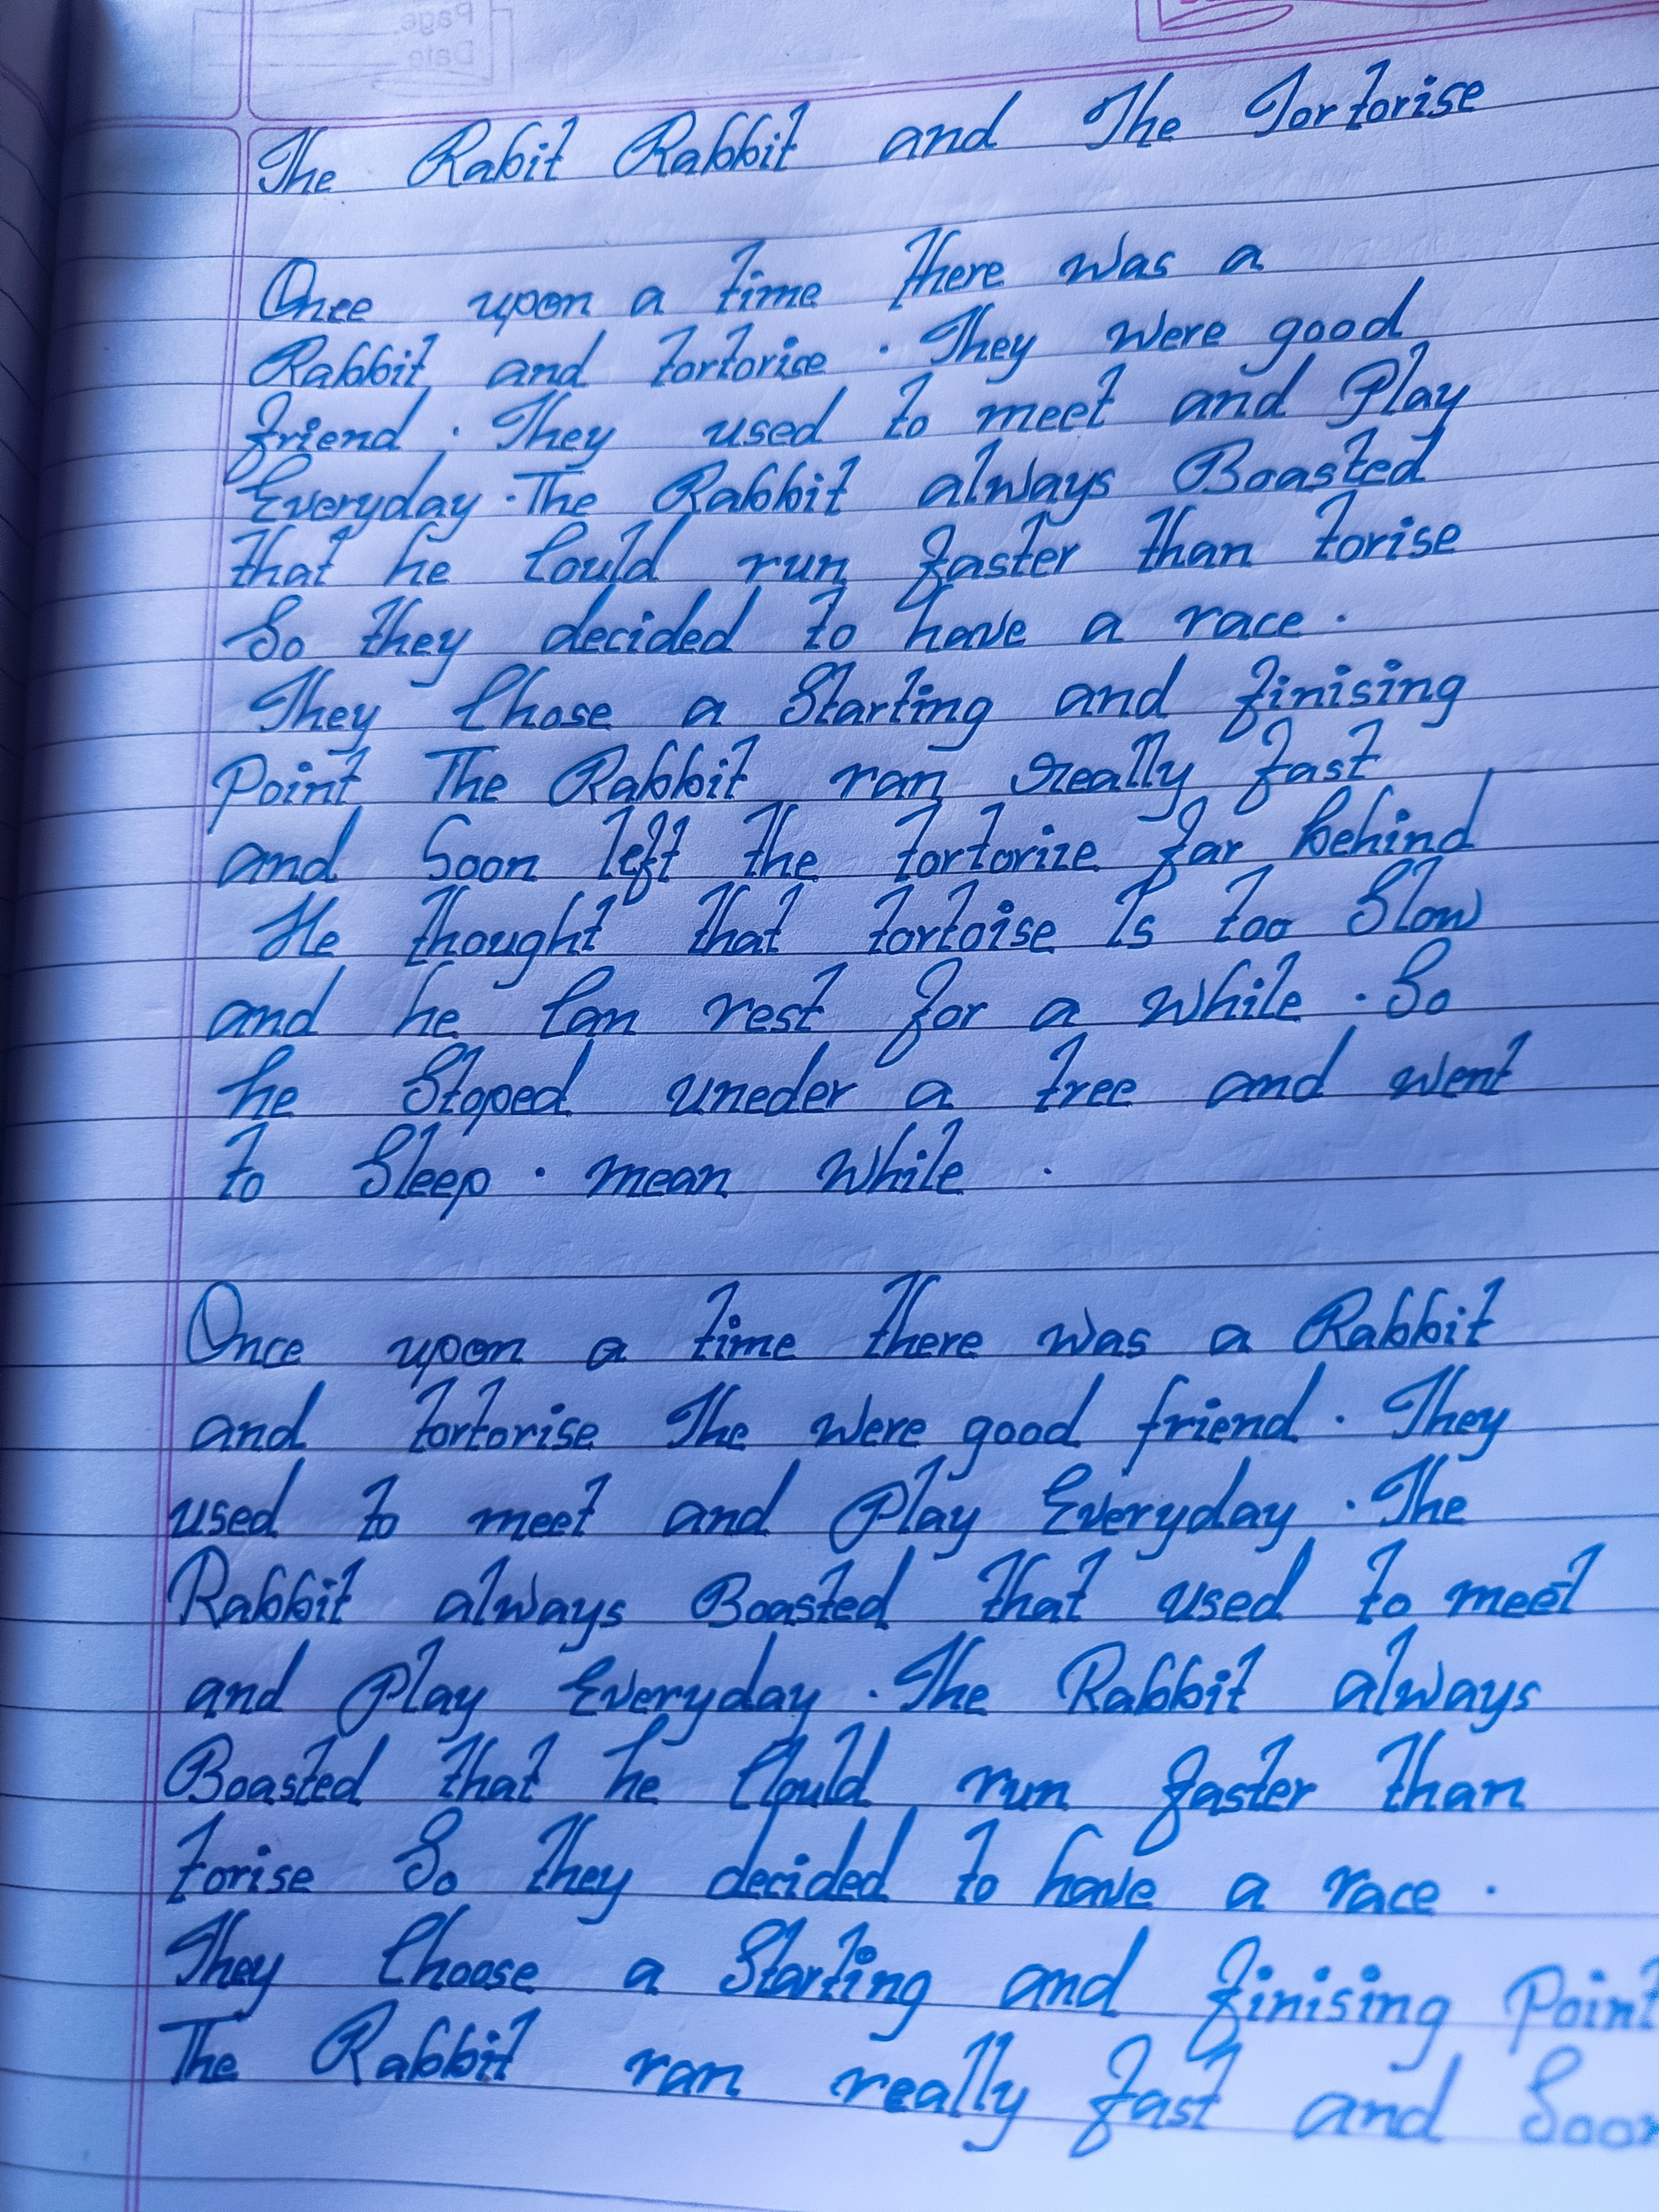 Page
Date
The Rabit Rabbit and The Tortorise
Once upon a time there was a
Rabbit and tortorise . They were good
friend . They used to meet and Play
Everyday . The Rabbit always Boasted
that he Could run faster than torise
So they decided to have a race .
They Chose a Starting and finising
Point The Rabbit ran really fast
and Soon left the tortorize far behind
He thought that tortoise Is too Slow
and he Can rest for a while . So
he Stoped uneder a tree and went
to Sleep . mean while .
Once upon a time there was a Rabbit
and tortorise The were good friend . They
used to meet and Play Everyday . The
Rabbit always Boasted that used to meet
and Play Everyday . The Rabbit always
Boasted that he Could run faster than
torise So they decided to have a race .
They Choose a Starting and finising Point
The Rabbit ran really fast and Soon